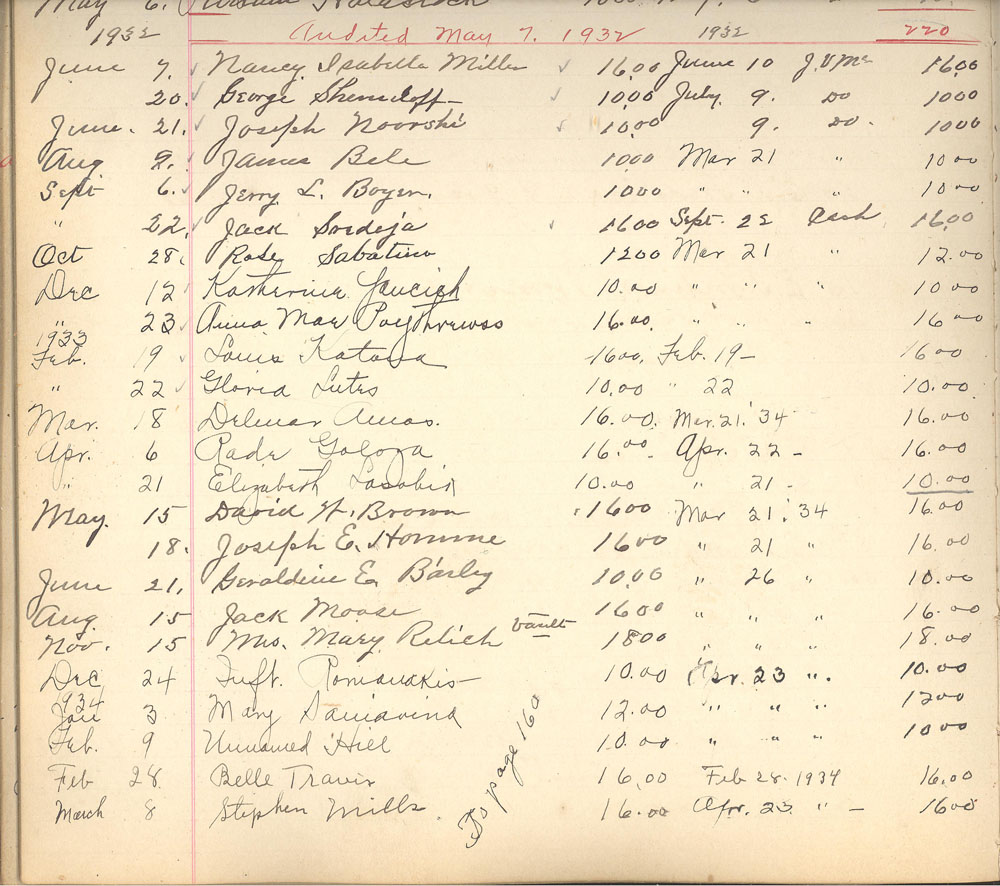 May 6.
1932 Audited May 7. 1932 1932 220
June 7. Nancy Isabella Miller 16.00 June 10 16.00
20. George 10.00 July 9. Do 10.00
June. 21. Joseph 10.00 9. Do. 10.00
Aug 9. James Bele 10.00 Mar 21 " 10.00
Sept 6. Jerry L. Boyer. 10.00 " " " 10.00
" 22. Jack Sredoja 16.00 Sept. 22 Cash 16.00
Oct 28. Rose Sabatino 12.00 Mar 21 " 12.00
Dec 12 Katherine 10.00 " " " 10.00
" 23 Anna Mae 16.00. " " " 16.00
1933
Feb. 19 Louis Katana 16.00. Feb. 19 – 16.00
" 22 Gloria Lutes 10.00 " 22 10.00
Mar. 18 Delmar Amos. 16.00. Mar. 21. '34 16.00
Apr. 6 Rade 16.00. Apr. 22 – 16.00
" 21 Elizabeth 10.00 " 21 – 10.00
May. 15 David H. Brown 16.00 Mar 21. '34 16.00
18. Joseph E. Homme 16.00 " 21 " 16.00
June 21. Geraldine E. Barley 10.00 " 26 " 10.00
Aug 15 Jack Moose 16.00 " " " 16.00
Nov. 15 Mrs. Mary Relich Vault 18.00 " " " 18.00
Dec 24 Inft. Romanakis 10.00 Apr. 23 ". 10.00
1934
Jan 3 Mary 12.00 " " " 12.00
Feb. 9 Unnamed Hill 10.00 " " " 10.00
Feb 28. Belle Travis 16.00 Feb 28. 1934 16.00
March 8 Stephen Mills. 16.00 Apr. 23 " – 16.00
To page 160